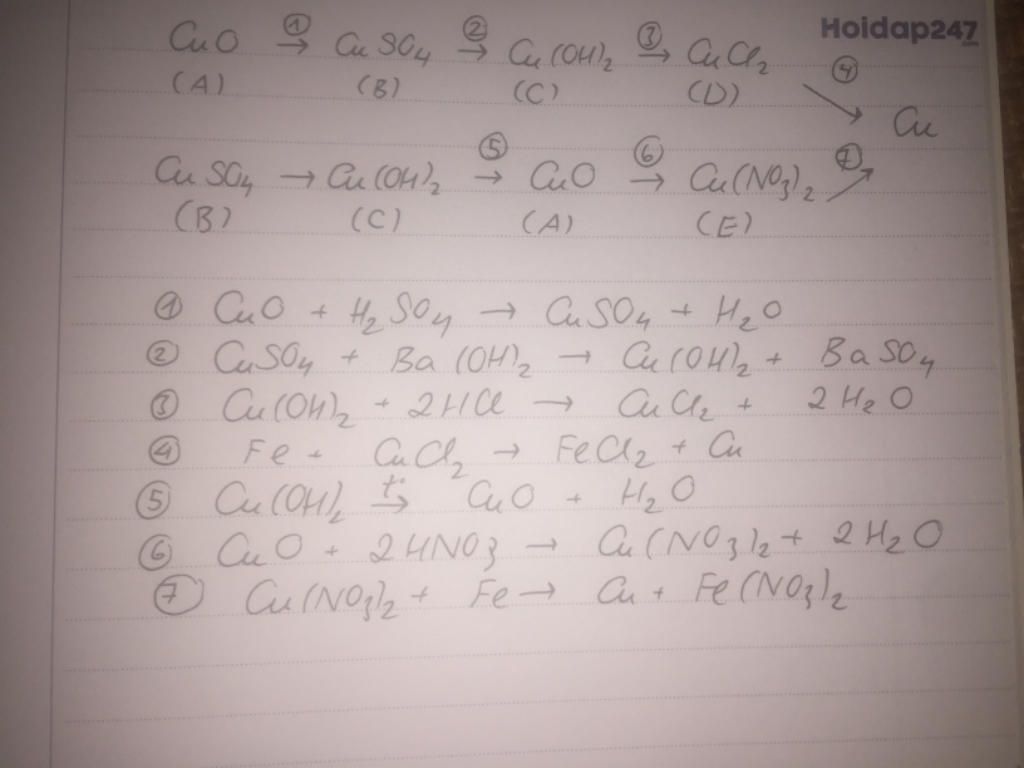 Hoidap247
① ② ③
CuO → CuSO₄ → Cu(OH)₂ → CuCl₂ ④
(A) (B) (C) (D)
Cu
⑤ ⑥ ⑦
CuSO₄ → Cu(OH)₂ → CuO → Cu(NO₃)₂
(B) (C) (A) (E)
① CuO + H₂SO₄ → CuSO₄ + H₂O
② CuSO₄ + Ba(OH)₂ → Cu(OH)₂ + BaSO₄
③ Cu(OH)₂ + 2HCl → CuCl₂ + 2H₂O
④ Fe + CuCl₂ → FeCl₂ + Cu
⑤ Cu(OH)₂ t° → CuO + H₂O
⑥ CuO + 2HNO₃ → Cu(NO₃)₂ + 2H₂O
⑦ Cu(NO₃)₂ + Fe → Cu + Fe(NO₃)₂